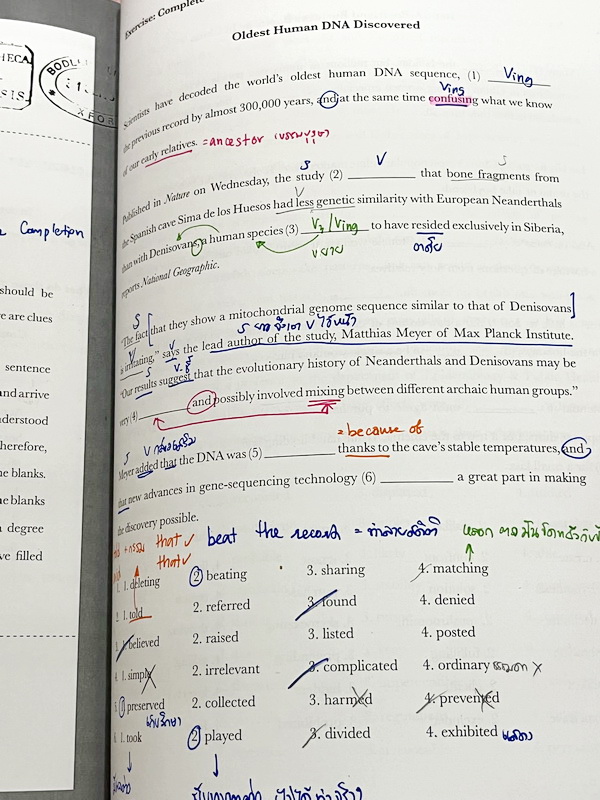 Exercise: Complete
Oldest Human DNA Discovered
HECA
BODL
SIS
XFOR
Completion
should be
re are clues
sentence
and arrive
nderstood
herefore,
e blanks.
e blanks
degree
ve filled
Ving
Scientists have decoded the world's oldest human DNA sequence, (1) ________
Ving
the previous record by almost 300,000 years, and at the same time confusing what we know
of our early relatives. = ancestor (บรรพบุรุษ)
S V S
Published in Nature on Wednesday, the study (2) ________ that bone fragments from
V
the Spanish cave Sima de los Huesos had less genetic similarity with European Neanderthals
V3/Ving
than with Denisovans, a human species (3) ________ to have resided exclusively in Siberia,
ขยาย อาศัย
reports National Geographic.
S
"The fact that they show a mitochondrial genome sequence similar to that of Denisovans
V V S
is irritating," says the lead author of the study, Matthias Meyer of Max Planck Institute.
S V
"Our results suggest that the evolutionary history of Neanderthals and Denisovans may be
very (4) ________ and possibly involved mixing between different archaic human groups."
= because of
S V
Meyer added that the DNA was (5) ________ thanks to the cave's stable temperatures, and
that new advances in gene-sequencing technology (6) ________ a great part in making
the discovery possible.
that V beat the record = ทำลายสถิติ
that V
1. 1. deleting 2. beating 3. sharing 4. matching
2. 1. told 2. referred 3. found 4. denied
3. 1. believed 2. raised 3. listed 4. posted
4. 1. simply 2. irrelevant 3. complicated 4. ordinary ธรรมดา X
5. 1. preserved 2. collected 3. harmed 4. prevented
เก็บรักษา
6. 1. took 2. played 3. divided 4. exhibited แสดง